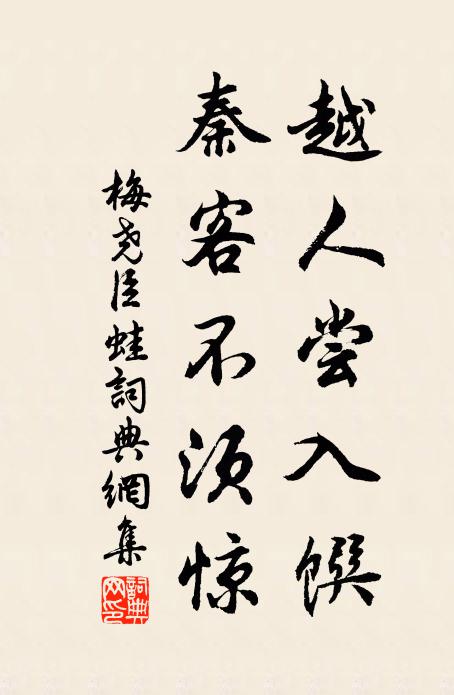 越人尝入馔
秦客不须惊
梅尧臣蛙詞典網集
詞典网印